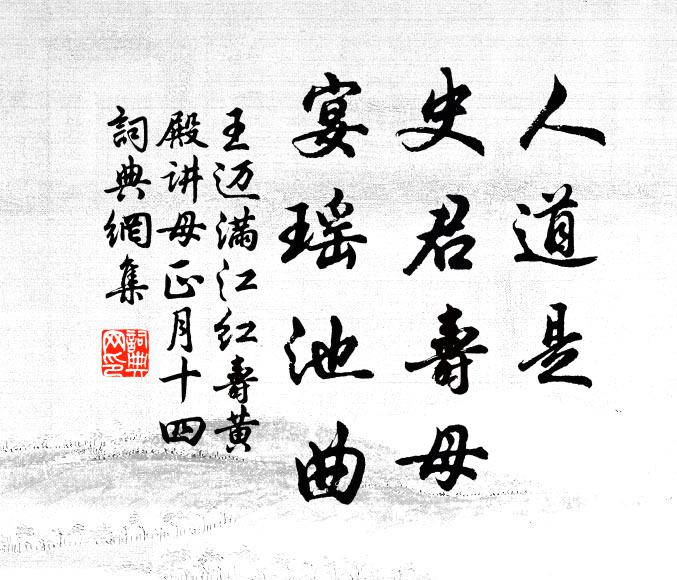 人道是
史君壽母
宴瑶池曲
王迈滿江红壽黄
殿讲母正月十四
詞典網集
詞典网印